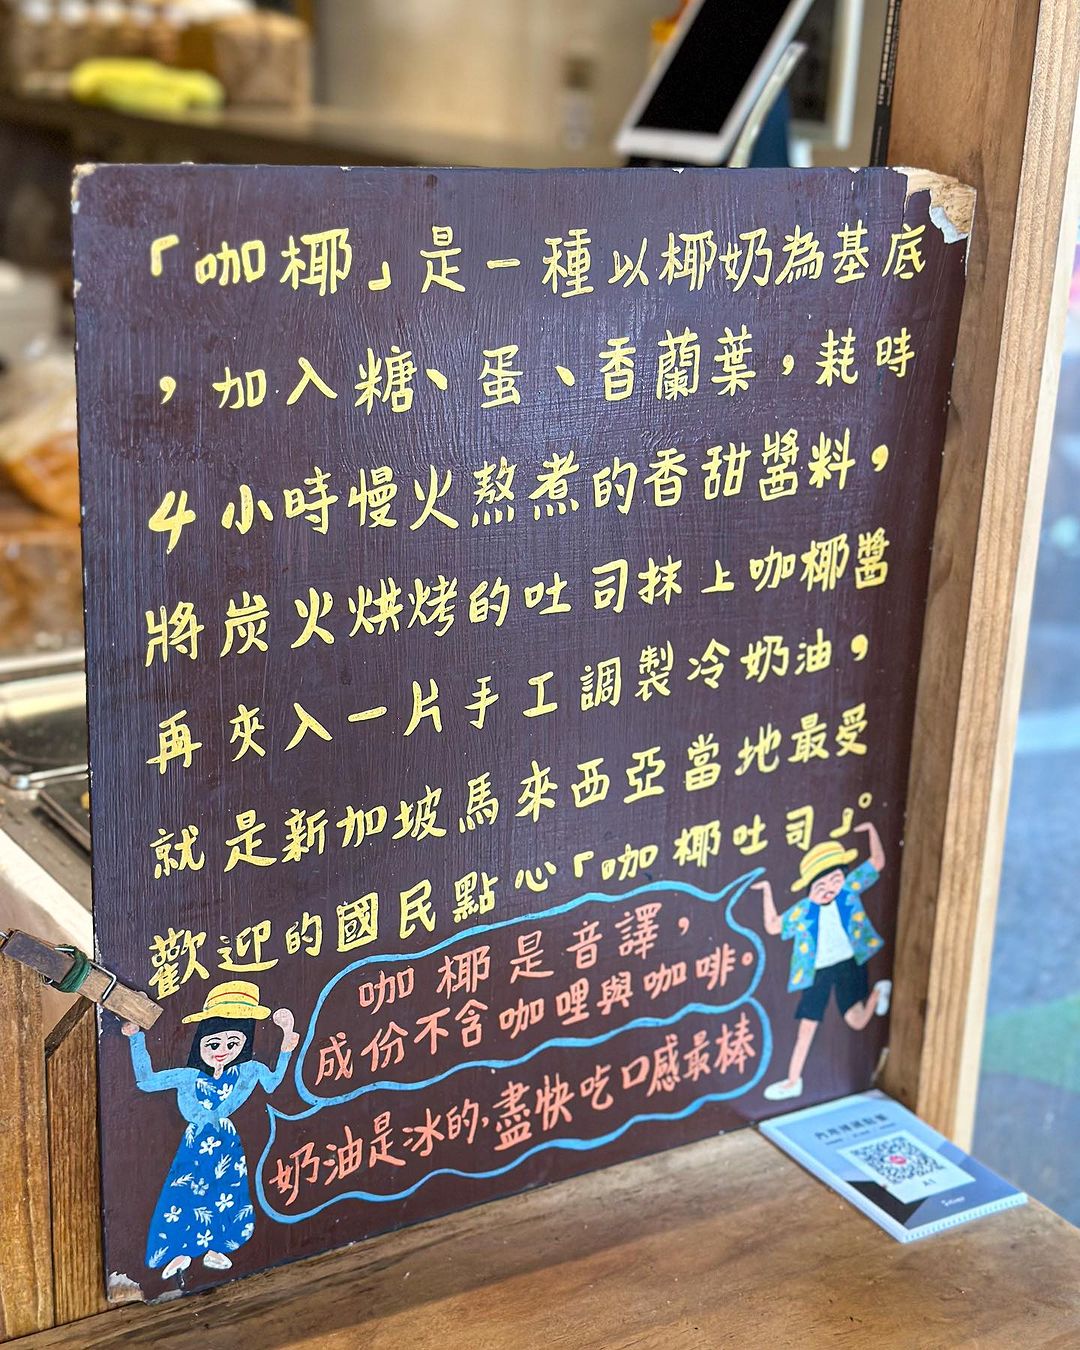 「咖椰」是一種以椰奶為基底
，加入糖、蛋、香蘭葉，耗時
4小時慢火熬煮的香甜醬料，
將炭火烘烤的吐司抹上咖椰醬
再夾入一片手工調製冷奶油，
就是新加坡馬來西亞當地最受
歡迎的國民點心「咖椰吐司」。
咖椰是音譯，
成份不含咖哩與咖啡。
奶油是冰的,盡快吃口感最棒
A1